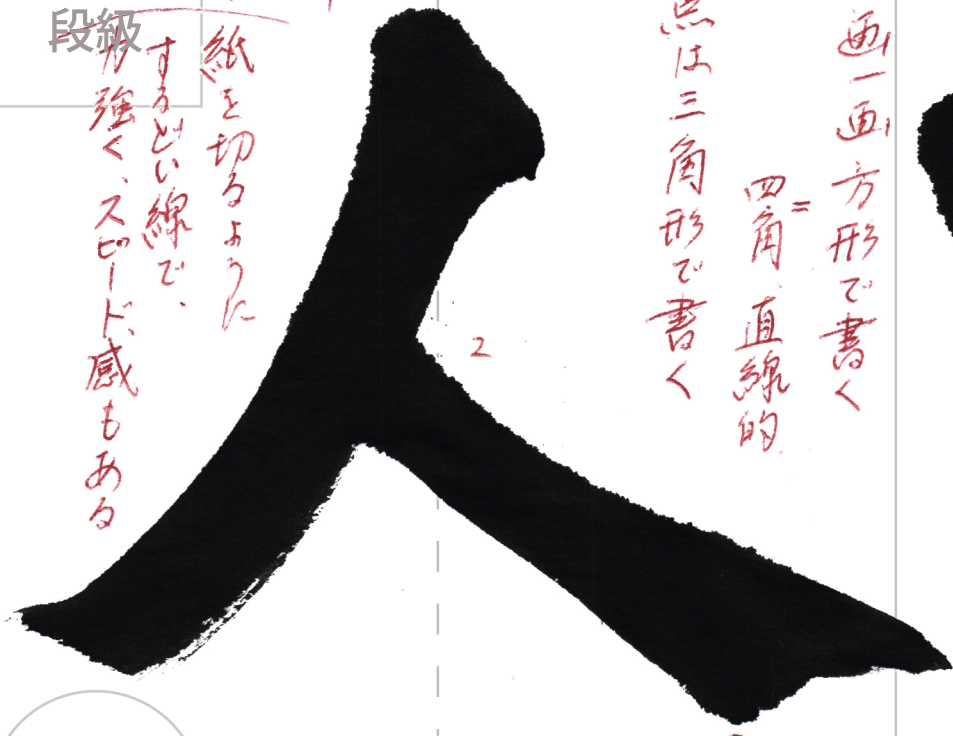 画一画方形で書く
=
四角、直線的
点は三角形で書く
2
人
紙を切るように
するどい線で、
力強く、スピード感もある
段級